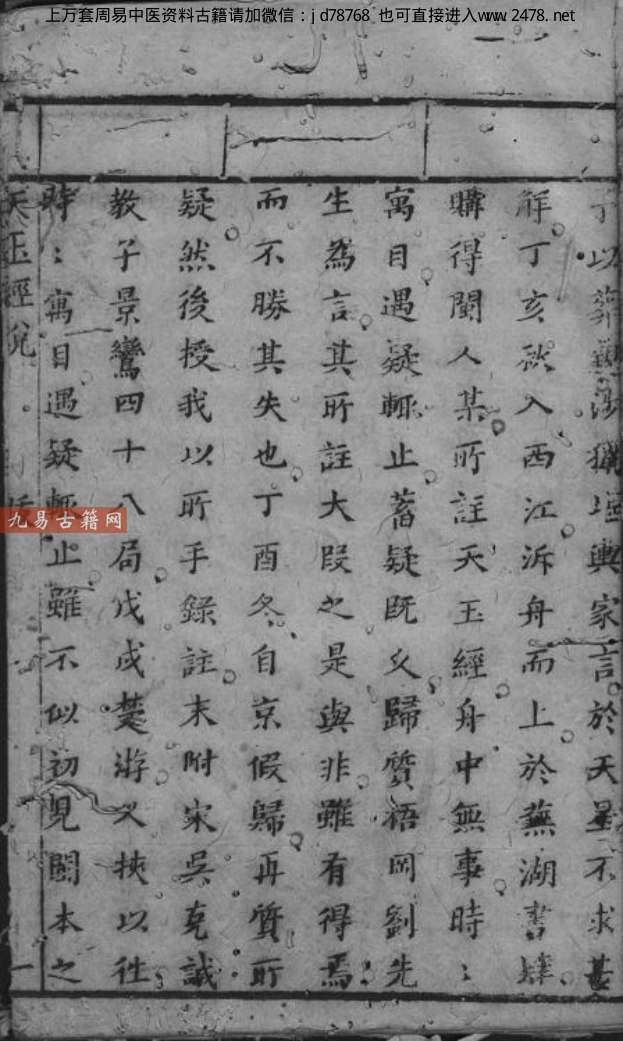 上万套周易中医资料古籍请加微信：jd78768 也可直接进入www.2478.net
丁以葬親涉獵堪輿家言於天星不求甚
解丁亥秋入西江泝舟而上於蕪湖書肆
購得閩人某所註天玉經舟中無事時〻
寓目遇疑輒止蓄疑既久歸質梧岡劉先
生為言其所註大段之是與非雖有得焉
而不勝其失也丁酉冬自京假歸再質所
疑然後授我以所手錄註末附宋吳克誠
教子景鸞四十八局戊戌楚游又挾以往
時〻寓目遇疑輒止雖不似初見閩本之
天玉經說
一
九易古籍网